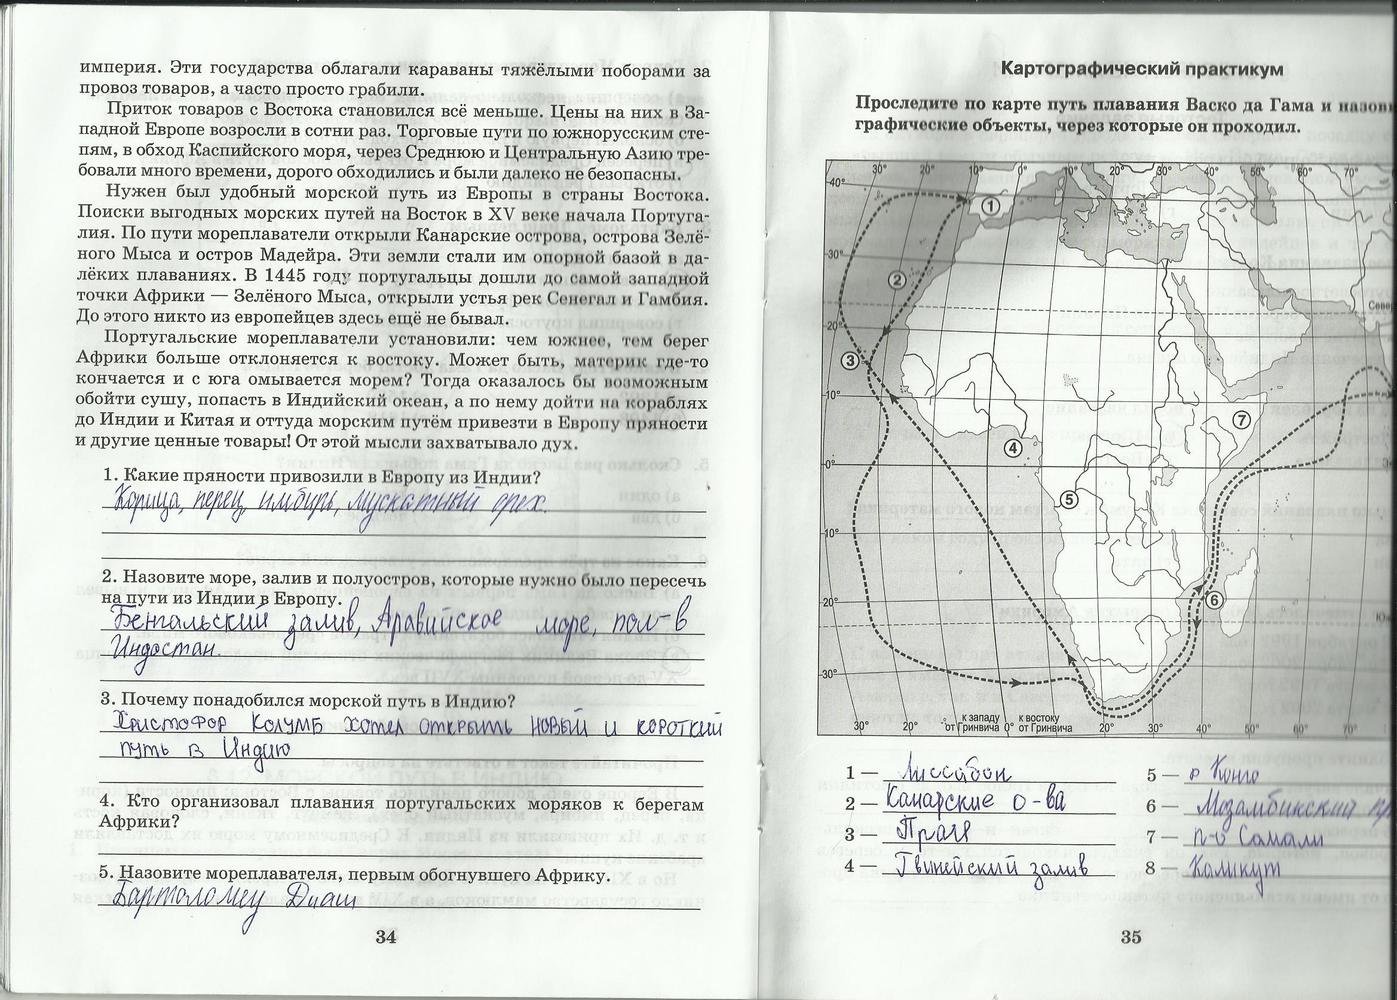 империя. Эти государства облагали караваны тяжёлыми поборами за
провоз товаров, а часто просто грабили.
Приток товаров с Востока становился всё меньше. Цены на них в За-
падной Европе возросли в сотни раз. Торговые пути по южнорусским сте-
пям, в обход Каспийского моря, через Среднюю и Центральную Азию тре-
бовали много времени, дорого обходились и были далеко не безопасны.
Нужен был удобный морской путь из Европы в страны Востока.
Поиски выгодных морских путей на Восток в XV веке начала Португа-
лия. По пути мореплаватели открыли Канарские острова, острова Зелё-
ного Мыса и остров Мадейра. Эти земли стали им опорной базой в да-
лёких плаваниях. В 1445 году португальцы дошли до самой западной
точки Африки — Зелёного Мыса, открыли устья рек Сенегал и Гамбия.
До этого никто из европейцев здесь ещё не бывал.
Португальские мореплаватели установили: чем южнее, тем берег
Африки больше отклоняется к востоку. Может быть, материк где-то
кончается и с юга омывается морем? Тогда оказалось бы возможным
обойти сушу, попасть в Индийский океан, а по нему дойти на кораблях
до Индии и Китая и оттуда морским путём привезти в Европу пряности
и другие ценные товары! От этой мысли захватывало дух.
1. Какие пряности привозили в Европу из Индии?
Корица, перец, имбирь, мускатный орех.
2. Назовите море, залив и полуостров, которые нужно было пересечь
на пути из Индии в Европу.
Бенгальский залив, Аравийское море, пол-в
Индостан.
3. Почему понадобился морской путь в Индию?
Христофор Колумб хотел открыть новый и короткий
путь в Индию
4. Кто организовал плавания португальских моряков к берегам
Африки?
5. Назовите мореплавателя, первым обогнувшего Африку.
Бартоломеу Диаш
34
Картографический практикум
Проследите по карте путь плавания Васко да Гама и назови
графические объекты, через которые он проходил.
40° 30° 20° 10° 0° 10° 20° 30° 40° 50° 60° 70°
1
30°
2
Севе
20°
3
10°
7
4
0°
5
10°
6
20°
Ю
30°
30° 20° к западу от Гринвича 0° к востоку от Гринвича 20° 30° 40° 50° 60° 70°
1 — Лиссабон
2 — Канарские о-ва
3 — Прая
4 — Гвинейский залив
5 — р Конго
6 — Мозамбикский пр
7 — п-в Сомали
8 — Каликут
35